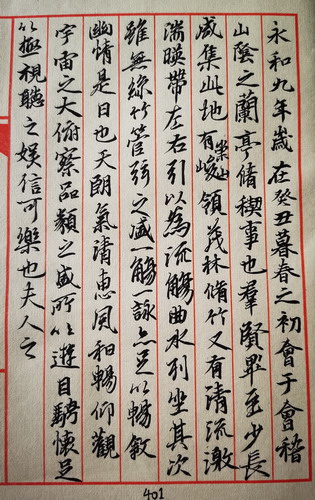 永和九年歲在癸丑暮春之初會于會稽
山陰之蘭亭脩稧事也羣賢畢至少長
咸集此地有崇山峻領茂林脩竹又有清流激
湍暎帶左右引以為流觴曲水列坐其次
雖無絲竹管弦之盛一觴詠亦足以暢敘
幽情是日也天朗氣清惠風和暢仰觀
宇宙之大俯察品類之盛所以遊目騁懷足
以極視聽之娛信可樂也夫人之
401